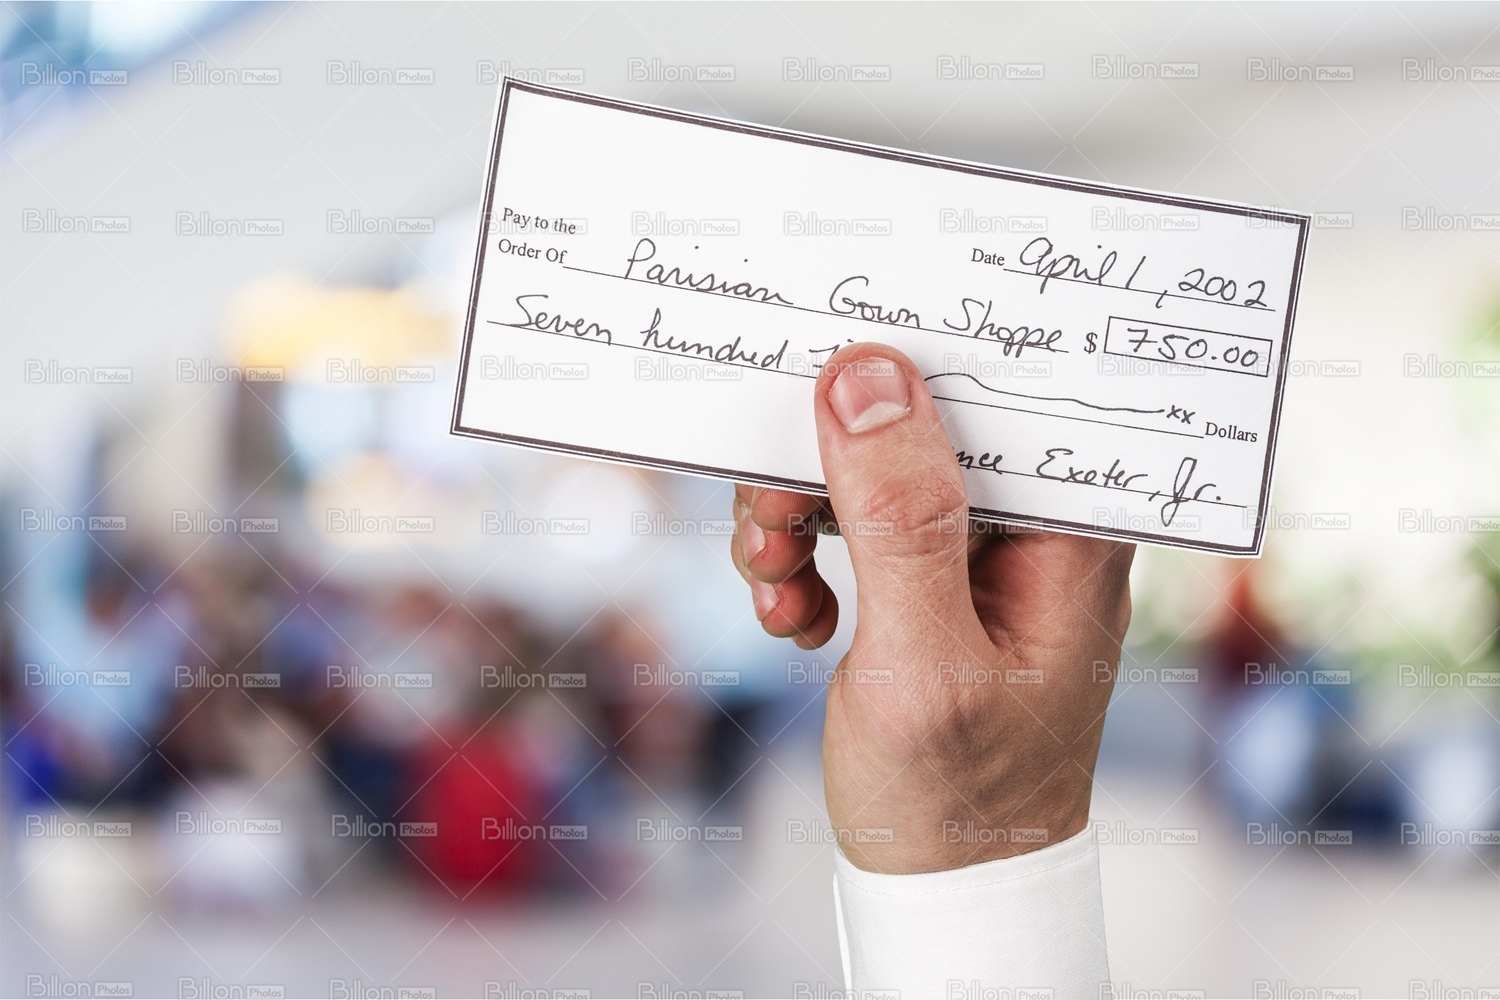 Pay to the
Order Of Parisian Gown Shoppe
Date April 1, 2002
$ 750.00
Seven hundred xx Dollars
Exeter, Jr.
Billion Photos